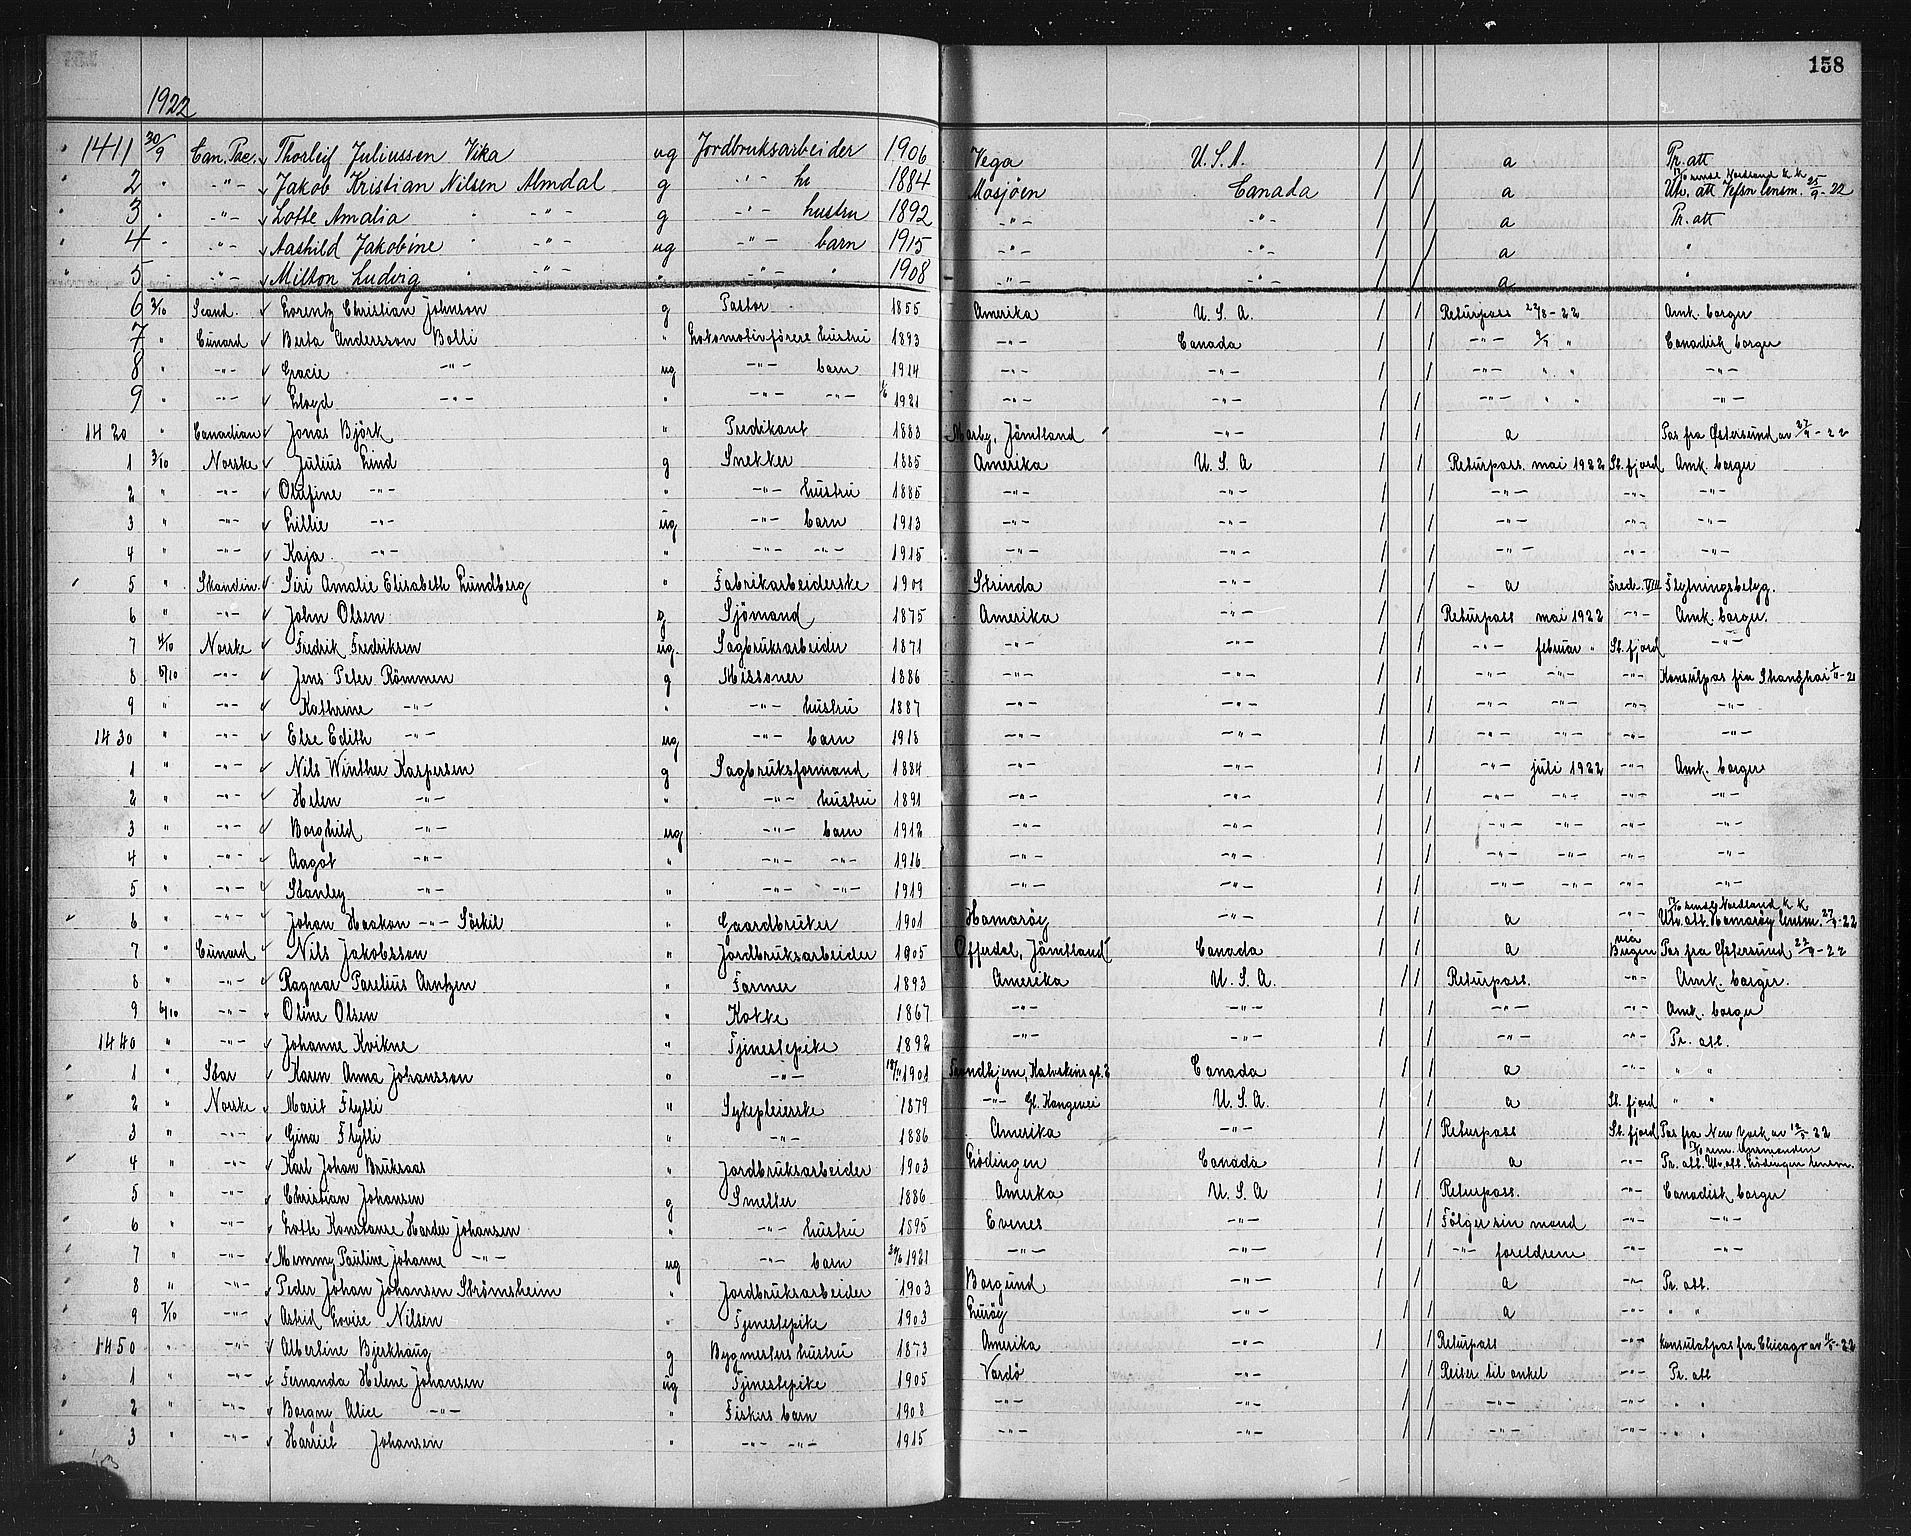 158
1922
1411 30/9 Can. Pac. Thorleif Juliussen Vika ug Jordbruksarbeider 1906 Vega U.S.A. / / a Pr. att
2 " -"- Jakob Kristian Nilsen Almdal g -"- 1884 Mosjøen Canada / / a Utv. att Vefsn lensm. 25/9-22
3 " -"- Lotte Amalia -"- g -"- hustru 1892 -"- -"- / / a Pr. att
4 " -"- Aashild Jakobine -"- ug -"- barn 1915 -"- -"- / / a "
5 " -"- Milton Ludvig -"- " -"- " 1908 -"- -"- / / a "
6 2/10 Scand. Lorentz Christian Johnson g Pastor 1855 Amerika U.S.A. / / Returpass 22/8-22 Amk. borger
7 " Cunard Berta Andersson Bolli " Lokomotivförers hustru 1893 -"- Canada / / -"- " Canadisk borger
8 " -"- Gracie -"- ug -"- barn 1914 -"- -"- / / -"- " " -"-
9 " -"- Lloyd -"- " -"- -"- 1921 -"- -"- / / -"- " " -"-
1420 " Canadian Jonas Björk " Predikant 1883 Marby, Jämtland -"- / / a Pas fra Østersund av 27/9-22
1 3/10 Norske Julius Lind g Snekker 1885 Amerika U.S.A / / Returpass. mai 1922 St. fjord Amk. borger
2 " -"- Olufine -"- " -"- hustru 1885 -"- -"- / / -"- -"- -"-
3 " -"- Lillie -"- ug -"- barn 1913 -"- -"- / / -"- -"- -"-
4 " -"- Kaja -"- " -"- -"- 1915 -"- -"- / / -"- -"- -"-
5 " Skandin. Siri Amalie Elisabeth Lundberg " Fabrikarbeiderske 1900 Strinda -"- / / a Fredr. VIII Flytningsbetyg.
6 " -"- John Olsen g Sjömand 1875 Amerika -"- / / Returpass mai 1922 -"- Amk. borger.
7 4/10 Norske Fredrik Fredriksen ug. Sagbruksarbeider 1871 -"- -"- / / -"- februar " St. fjord -"-
8 5/10 -"- Jens Peter Römmen g Missoner 1886 -"- -"- / / -"- -"- -"- Konsulpas fra Shanghai -21
9 " -"- Kathrine -"- " -"- hustru 1887 -"- -"- / / -"- -"- -"- -"-
1430 " -"- Else Edith -"- ug -"- barn 1918 -"- -"- / / -"- -"- -"- -"-
1 " -"- Nils Winther Kaspersen g Sagbruksformand 1884 -"- -"- / / -"- juli 1922 -"- Amk. borger
2 " -"- Helen -"- " -"- hustru 1891 -"- -"- / / -"- -"- -"- -"-
3 " -"- Borghild -"- ug -"- barn 1912 -"- -"- / / -"- -"- -"- -"-
4 " -"- Aagot -"- " -"- -"- 1916 -"- -"- / / -"- -"- -"- -"-
5 " -"- Stanley -"- " -"- -"- 1919 -"- -"- / / -"- -"- -"- -"-
6 " -"- Johan Haakon -"- Sörkil " Gaardbruker 1901 Hamaröy -"- / / a -"- Utv. att. Hamaröy lensm. 27/9-22
7 " Cunard Nils Jakobsson " Jordbruksarbeider 1905 Offerdal, Jämtland Canada / / a via Bergen Pas fra Østersund 22/9-22
8 " -"- Ragnar Parelius Arntzen " Farmer 1893 Amerika U.S.A. / / Returpass. -"- Amk. borger.
9 6/10 -"- Oline Olsen " Kokke 1867 -"- -"- / / -"- -"- Amk. borger
1440 " -"- Johanne Kvikne " Tjenestepike 1892 -"- -"- / / -"- -"- Pr. att.
1 " Star Karen Anna Johansson " -"- 1901 Trondhjem, Kalvskinsgt. 3 Canada / / a -"- " "
2 " Norske Marit Flytli " Sykepleierske 1879 -"- Gl. Kongevei U.S.A. / / a St. fjord " "
3 " -"- Gina Flytli " -"- 1886 Amerika -"- / / Returpass St. fjord Pas fra New York av 12/5-22
4 " -"- Karl Johan Bruksaas " Jordbruksarbeider 1903 Lödingen Canada / / a -"- Pr. att. Utv. att. Lödingen lensm.
5 " -"- Christian Johansen g Smelter 1886 Amerika U.S.A / / Returpass. -"- Canadisk borger
6 " -"- Lotte Konstanse Harder Johansen " -"- hustru 1895 Evenes -"- / / Fölger sin mand -"- -"-
7 " -"- Memmy Pauline Johanne -"- ug -"- barn 1921 -"- -"- / / -"- foreldrene -"- -"-
8 " -"- Peder Johan Johansen Strömsheim " Jordbruksarbeider 1903 Borgund -"- / / a -"- Pr. att.
9 7/10 -"- Astrid Lovise Nilsen " Tjenestepike 1903 Luröy -"- / / a -"- " "
1450 " -"- Albertine Bjerkhaug g Bygmesters hustru 1873 Amerika -"- / / Returpass -"- Konsulatpas fra Chicago av -22
1 " -"- Fernanda Helene Johansen ug Tjenestepike 1905 Vardö -"- / / Reiser til onkel -"- Pr. att
2 " -"- Borgny Alice -"- " Fiskers barn 1908 -"- -"- / / -"- -"- " "
3 " -"- Harriet Johansen " -"- -"- 1915 -"- -"- / / -"- -"- " "